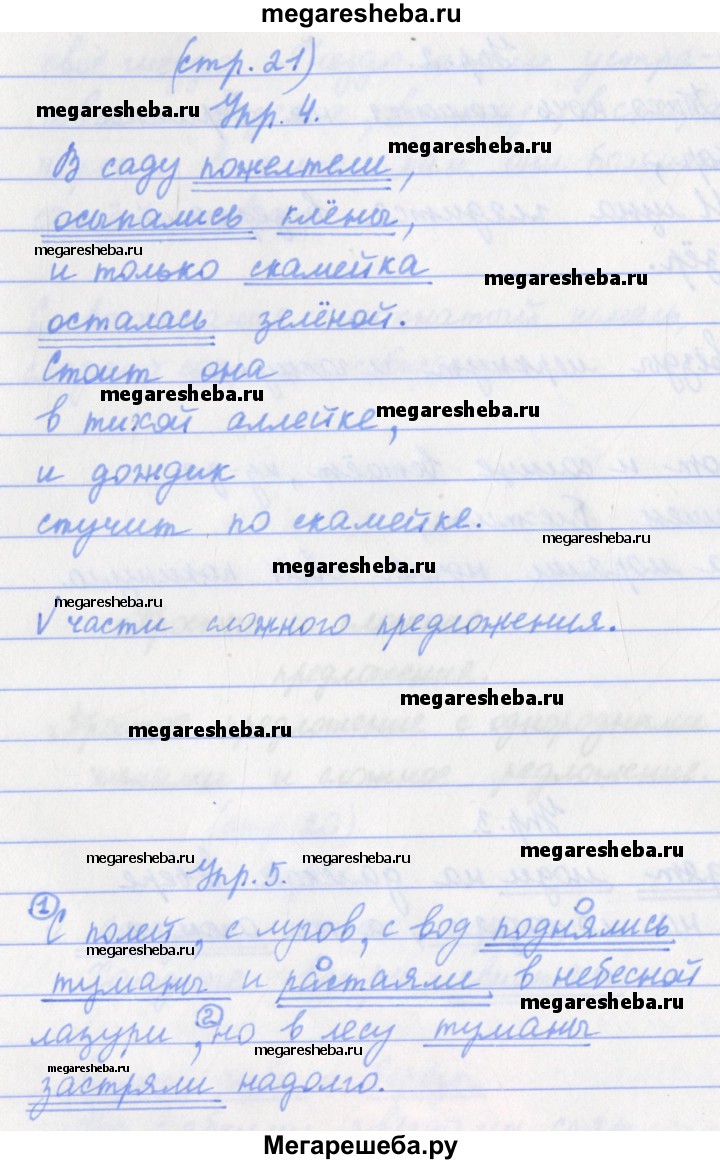 megaresheba.ru
(стр. 21)
megaresheba.ru Упр. 4.
В саду пожелтели, megaresheba.ru
осыпались клёны,
megaresheba.ru
и только скамейка megaresheba.ru
осталась зелёной.
Стоит она
megaresheba.ru megaresheba.ru
в тихой аллейке,
и дождик
стучит по скамейке.
megaresheba.ru
megaresheba.ru
megaresheba.ru
√ части сложного предложения.
megaresheba.ru
megaresheba.ru
megaresheba.ru Упр. 5. megaresheba.ru megaresheba.ru
1 С полей, с лугов, с вод поднялись
megaresheba.ru
туманы и растаяли в небесной
megaresheba.ru
лазури, 2 но в лесу туманы
megaresheba.ru
megaresheba.ru
застряли надолго.
Мегарешеба.ру